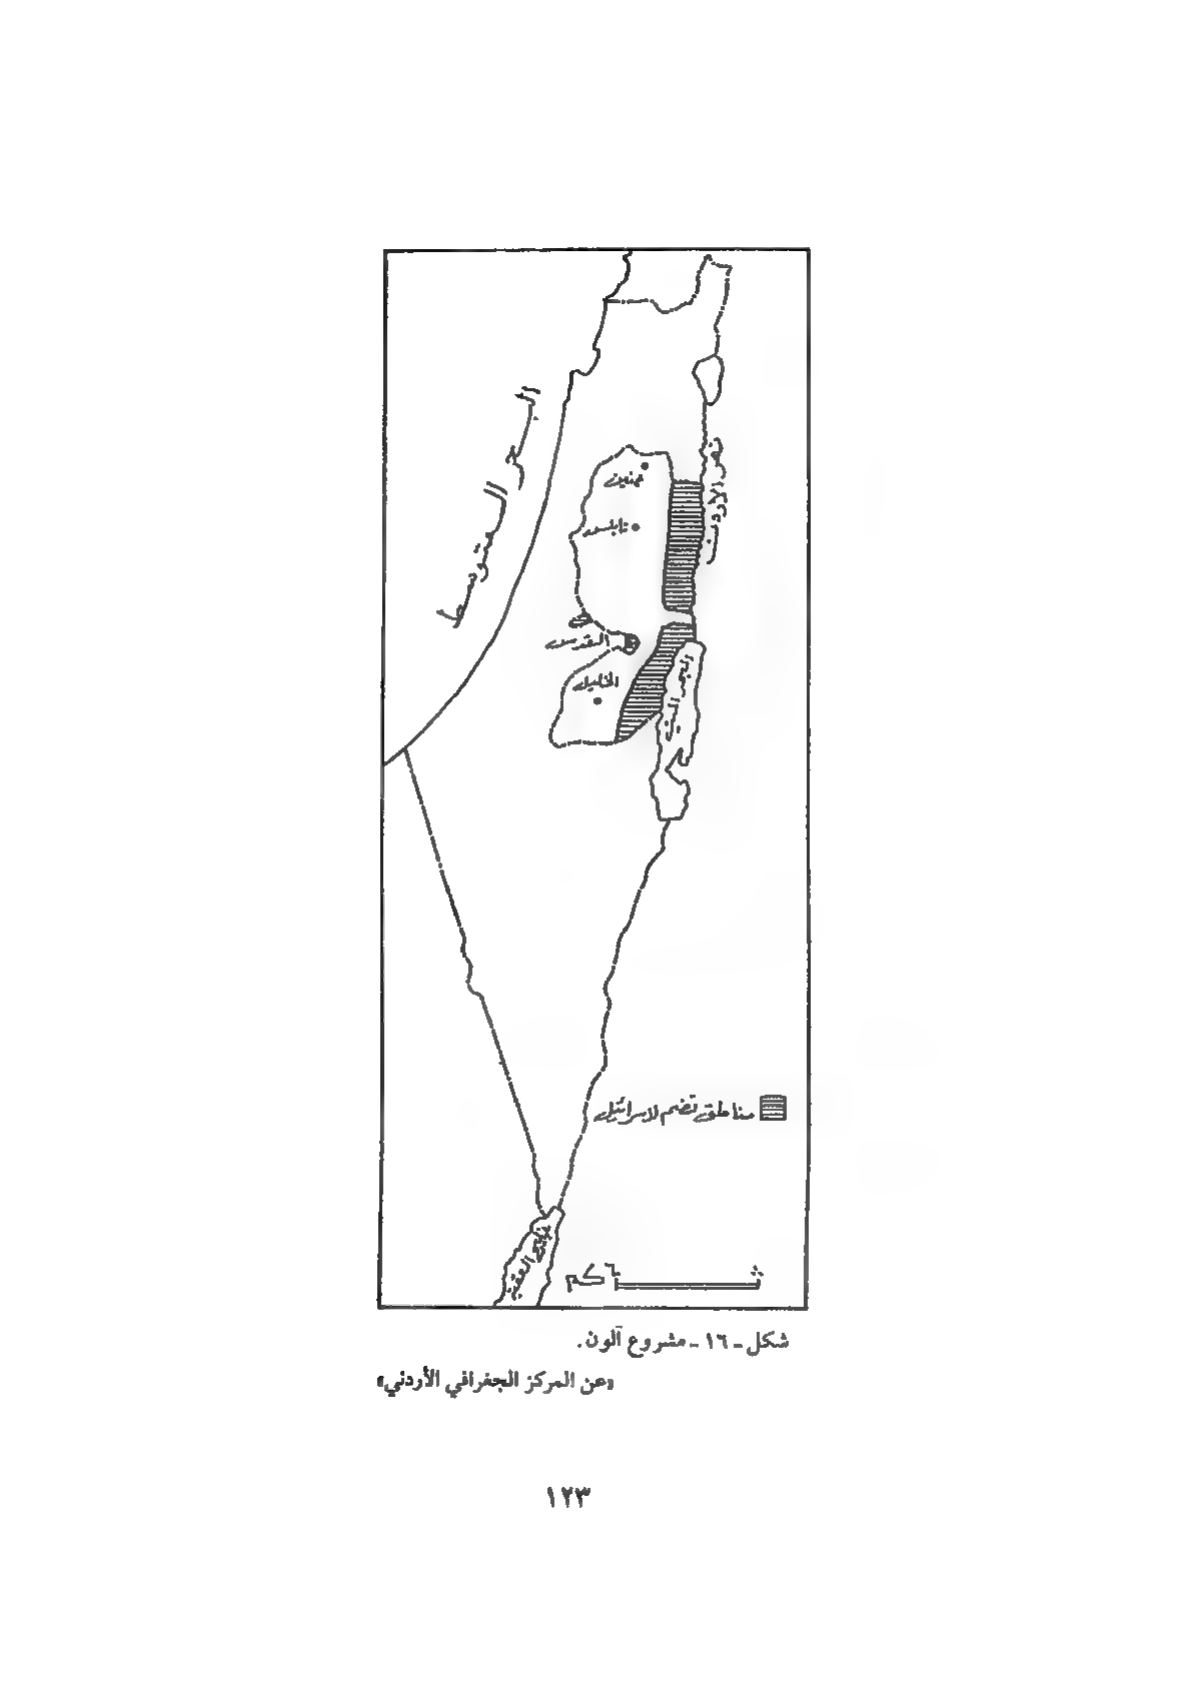 البحر المتوسط
نهر الاردن
جنين
نابلس
القدس
الخليل
البحر الميت
مناطق تضم لاسرائيل
خليج العقبة
كم
شكل ـ ١٦ ـ مشروع آلون.
«عن المركز الجغرافي الأردني»
١٢٣